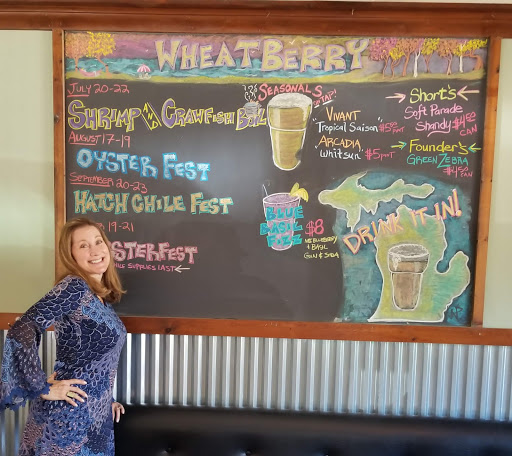 WHEATBERRY
JULY 20-22
SHRIMP AND CRAWFISH BOIL
AUGUST 17-19
OYSTER FEST
SEPTEMBER 20-23
HATCH CHILE FEST
19-21
SEASONALS
TAP!
"VIVANT
Tropical Saison" $5 POINT
ARCADIA
WHITSUN $5 POINT
→ SHORT'S ←
SOFT PARADE
SHANDY $4.50
CAN
→ FOUNDER'S ←
GREEN ZEBRA
CAN
BLUE
BASIL
FIZZ
$8
BLUEBERRY
+ BASIL
GIN & SODA
SUPPLIES LAST ←
DRINK IT IN!